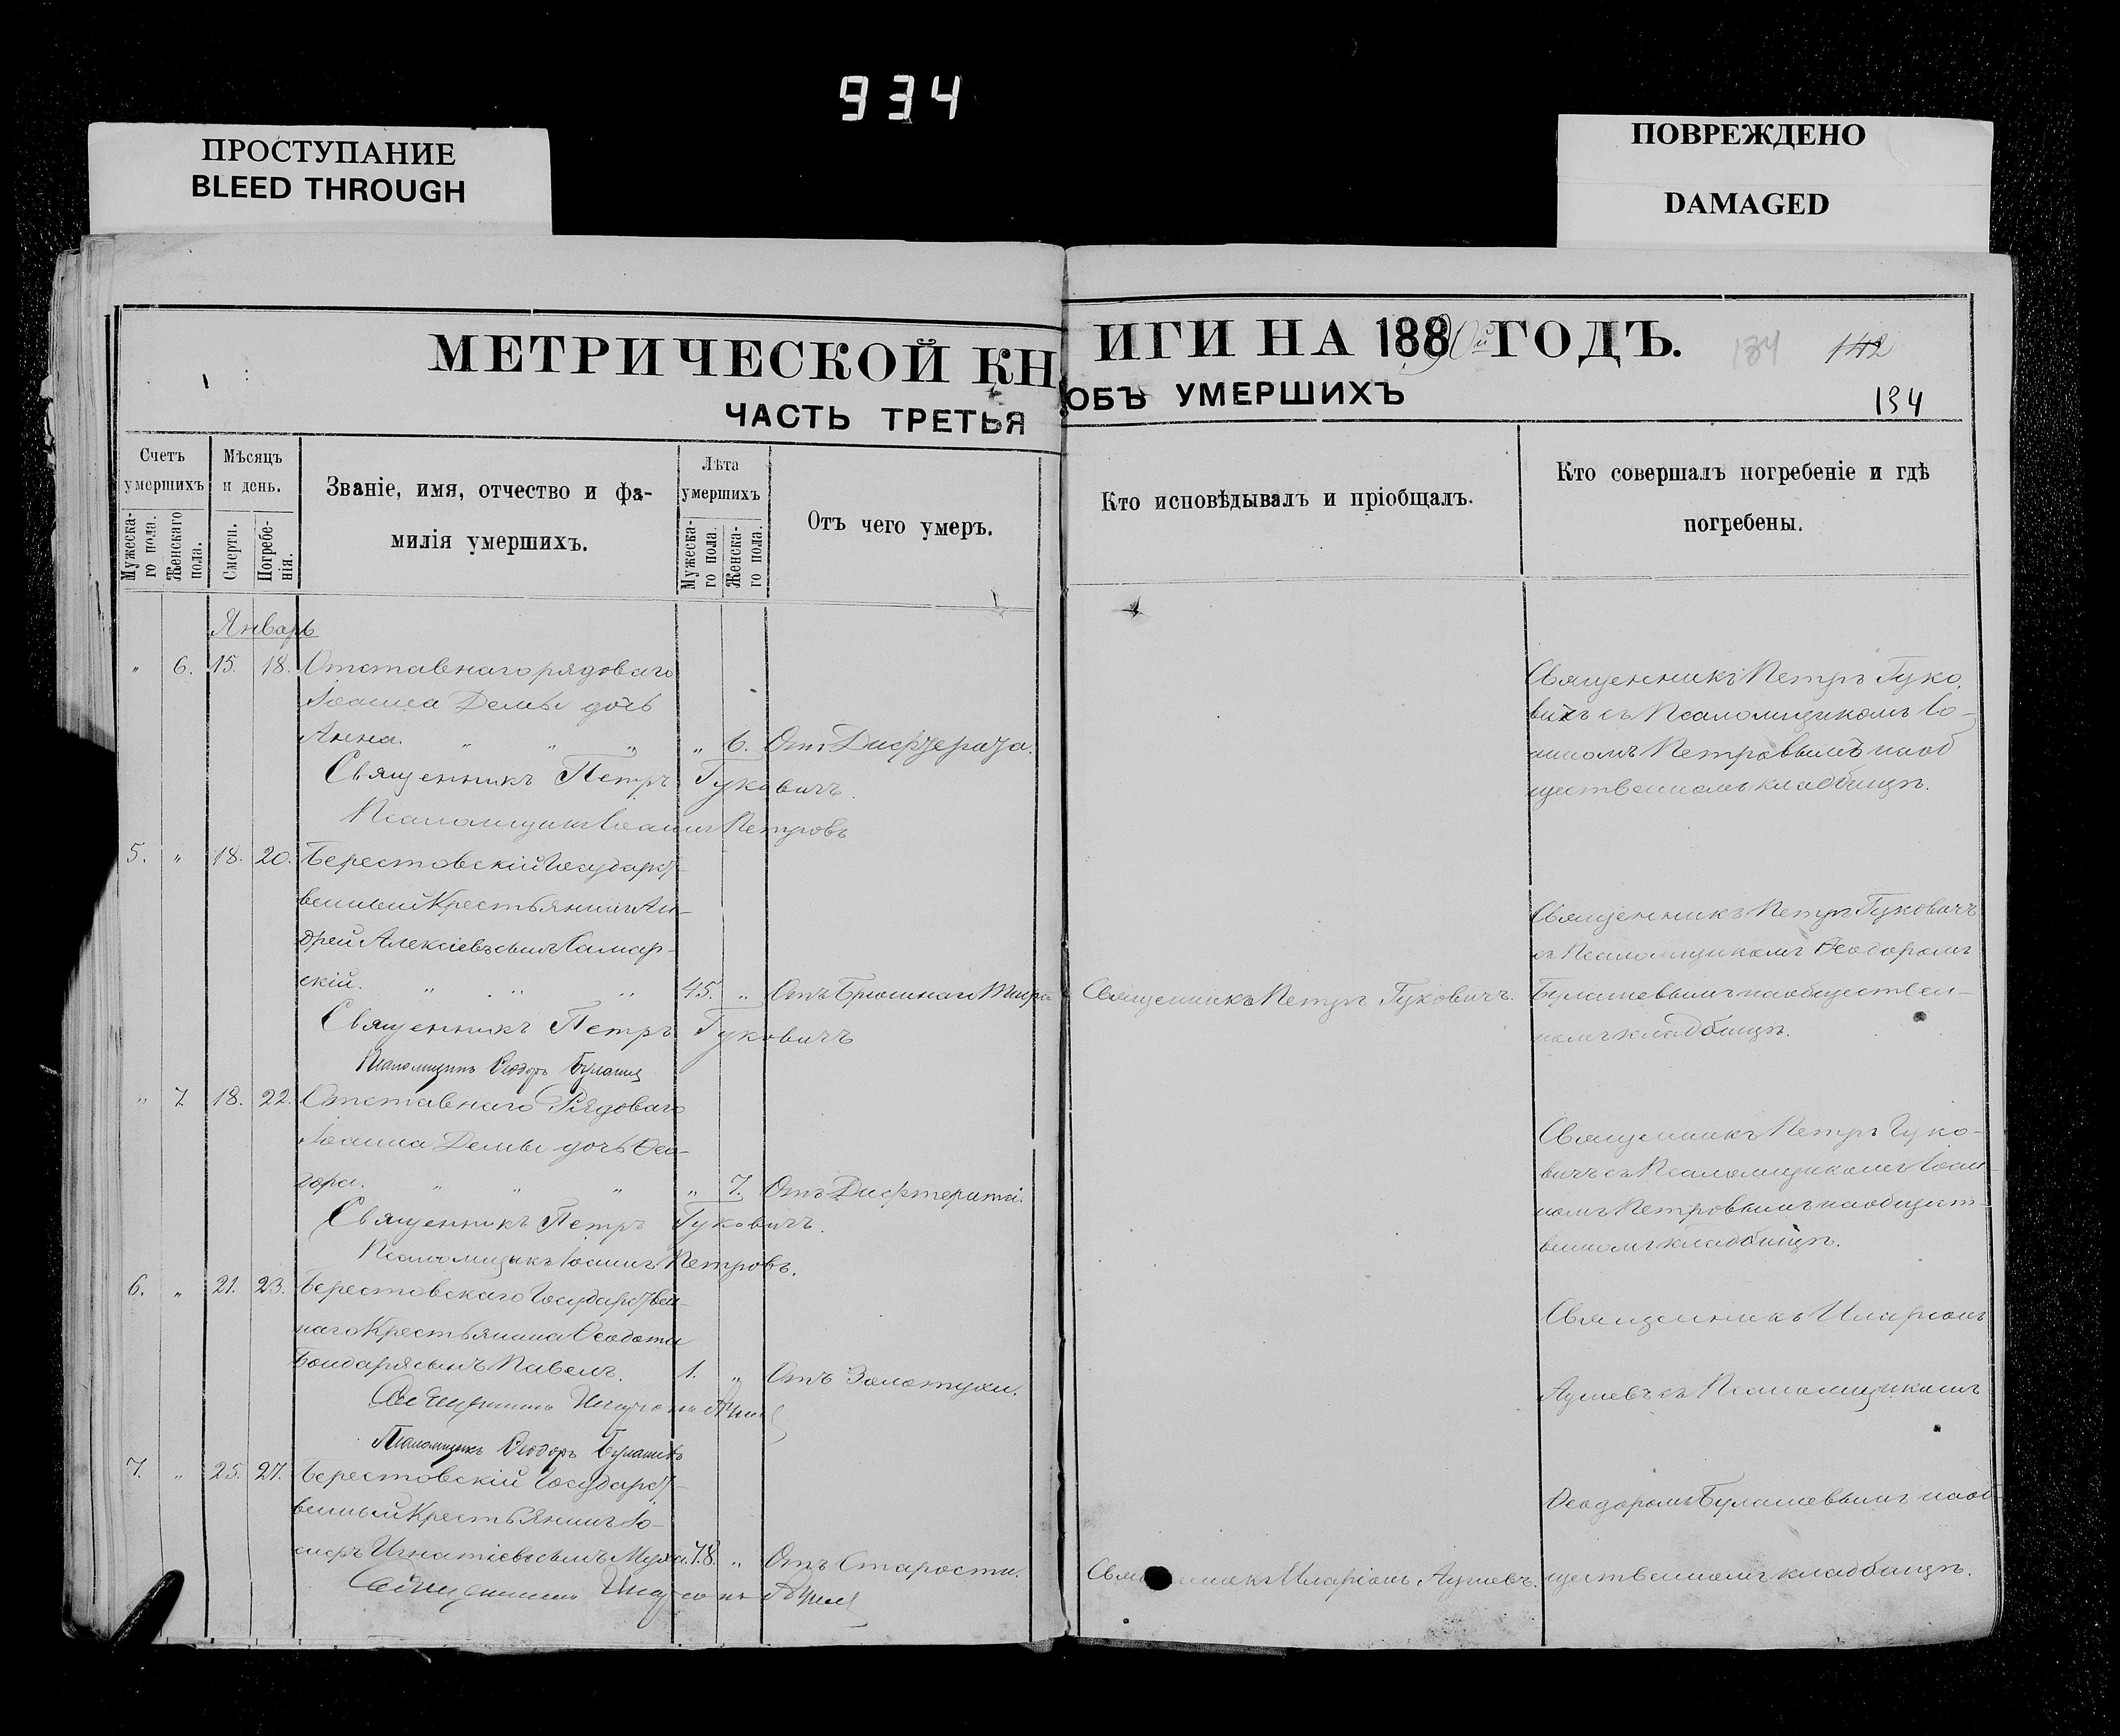 934
ПРОСТУПАНИЕ
BLEED THROUGH
ПОВРЕЖДЕНО
DAMAGED
МЕТРИЧЕСКОЙ КНИГИ НА 1890й ГОДЪ.
184 142
ЧАСТЬ ТРЕТЬЯ ОБЪ УМЕРШИХЪ
134
Счетъ умершихъ
Мужеска-го пола.
Женскаго пола.
Мѣсяцъ и день.
Смерти.
Погребе-нія.
Званіе, имя, отчество и фа-
милія умершихъ.
Лѣта умершихъ
Мужеска-го пола.
Женска-го пола.
Отъ чего умеръ.
Кто исповѣдывалъ и пріобщалъ.
Кто совершалъ погребеніе и гдѣ
погребены.
Январь
" 6. 15. 18. Отставнаго рядоваго
Іоанна Демы дочь
Анна. " " " " 6. Отъ Дифтерита.
Священникъ Петръ Гуко-
вичъ съ Псаломщикомъ Іо-
анномъ Петровымъ на об
щественномъ кладбищѣ.
Священникъ Петръ Гуковичъ.
Псаломщикъ Іоаннъ Петровъ
5. " 18. 20. Берестовскій Государст-
венный Крестьянинъ Ан-
дрей Алексіевъ сынъ Самар-
скій. " " " 45. " Отъ Брюшнаго Тифа
Священникъ Петръ Гуковичъ.
Священникъ Петръ Гуковичъ
съ Псаломщикомъ Ѳеодоромъ
Булашевымъ на обществен-
номъ кладбищѣ.
Священникъ Петръ Гуковичъ
Псаломщикъ Ѳеодоръ Булашев
" 7. 18. 22. Отставнаго Рядоваго
Іоанна Демы дочь Ѳео-
дора. " " " " 7. Отъ Дифтерита.
Священникъ Петръ Гуко-
вичъ съ Псаломщикомъ Іоан-
номъ Петровымъ на общест-
венномъ кладбищѣ.
Священникъ Петръ Гуковичъ.
Псаломщикъ Іоаннъ Петровъ.
6. " 21. 23. Берестовскаго Государствен-
наго Крестьянина Ѳеодота
Бондаря сынъ Павелъ. 1. " Отъ Золотухи.
Священникъ Иларіонъ
Псаломщикъ Ѳеодоръ Булашевъ
7. " 25. 27. Берестовскій Государст-
венный Крестьянинъ Іо-
сифъ Игнатіевъ сынъ 78. " Отъ Старости.
Священникъ Иларіонъ
Священникъ Иларіонъ
съ Псаломщикомъ
Ѳеодоромъ Булашевымъ на об-
щественномъ кладбищѣ.